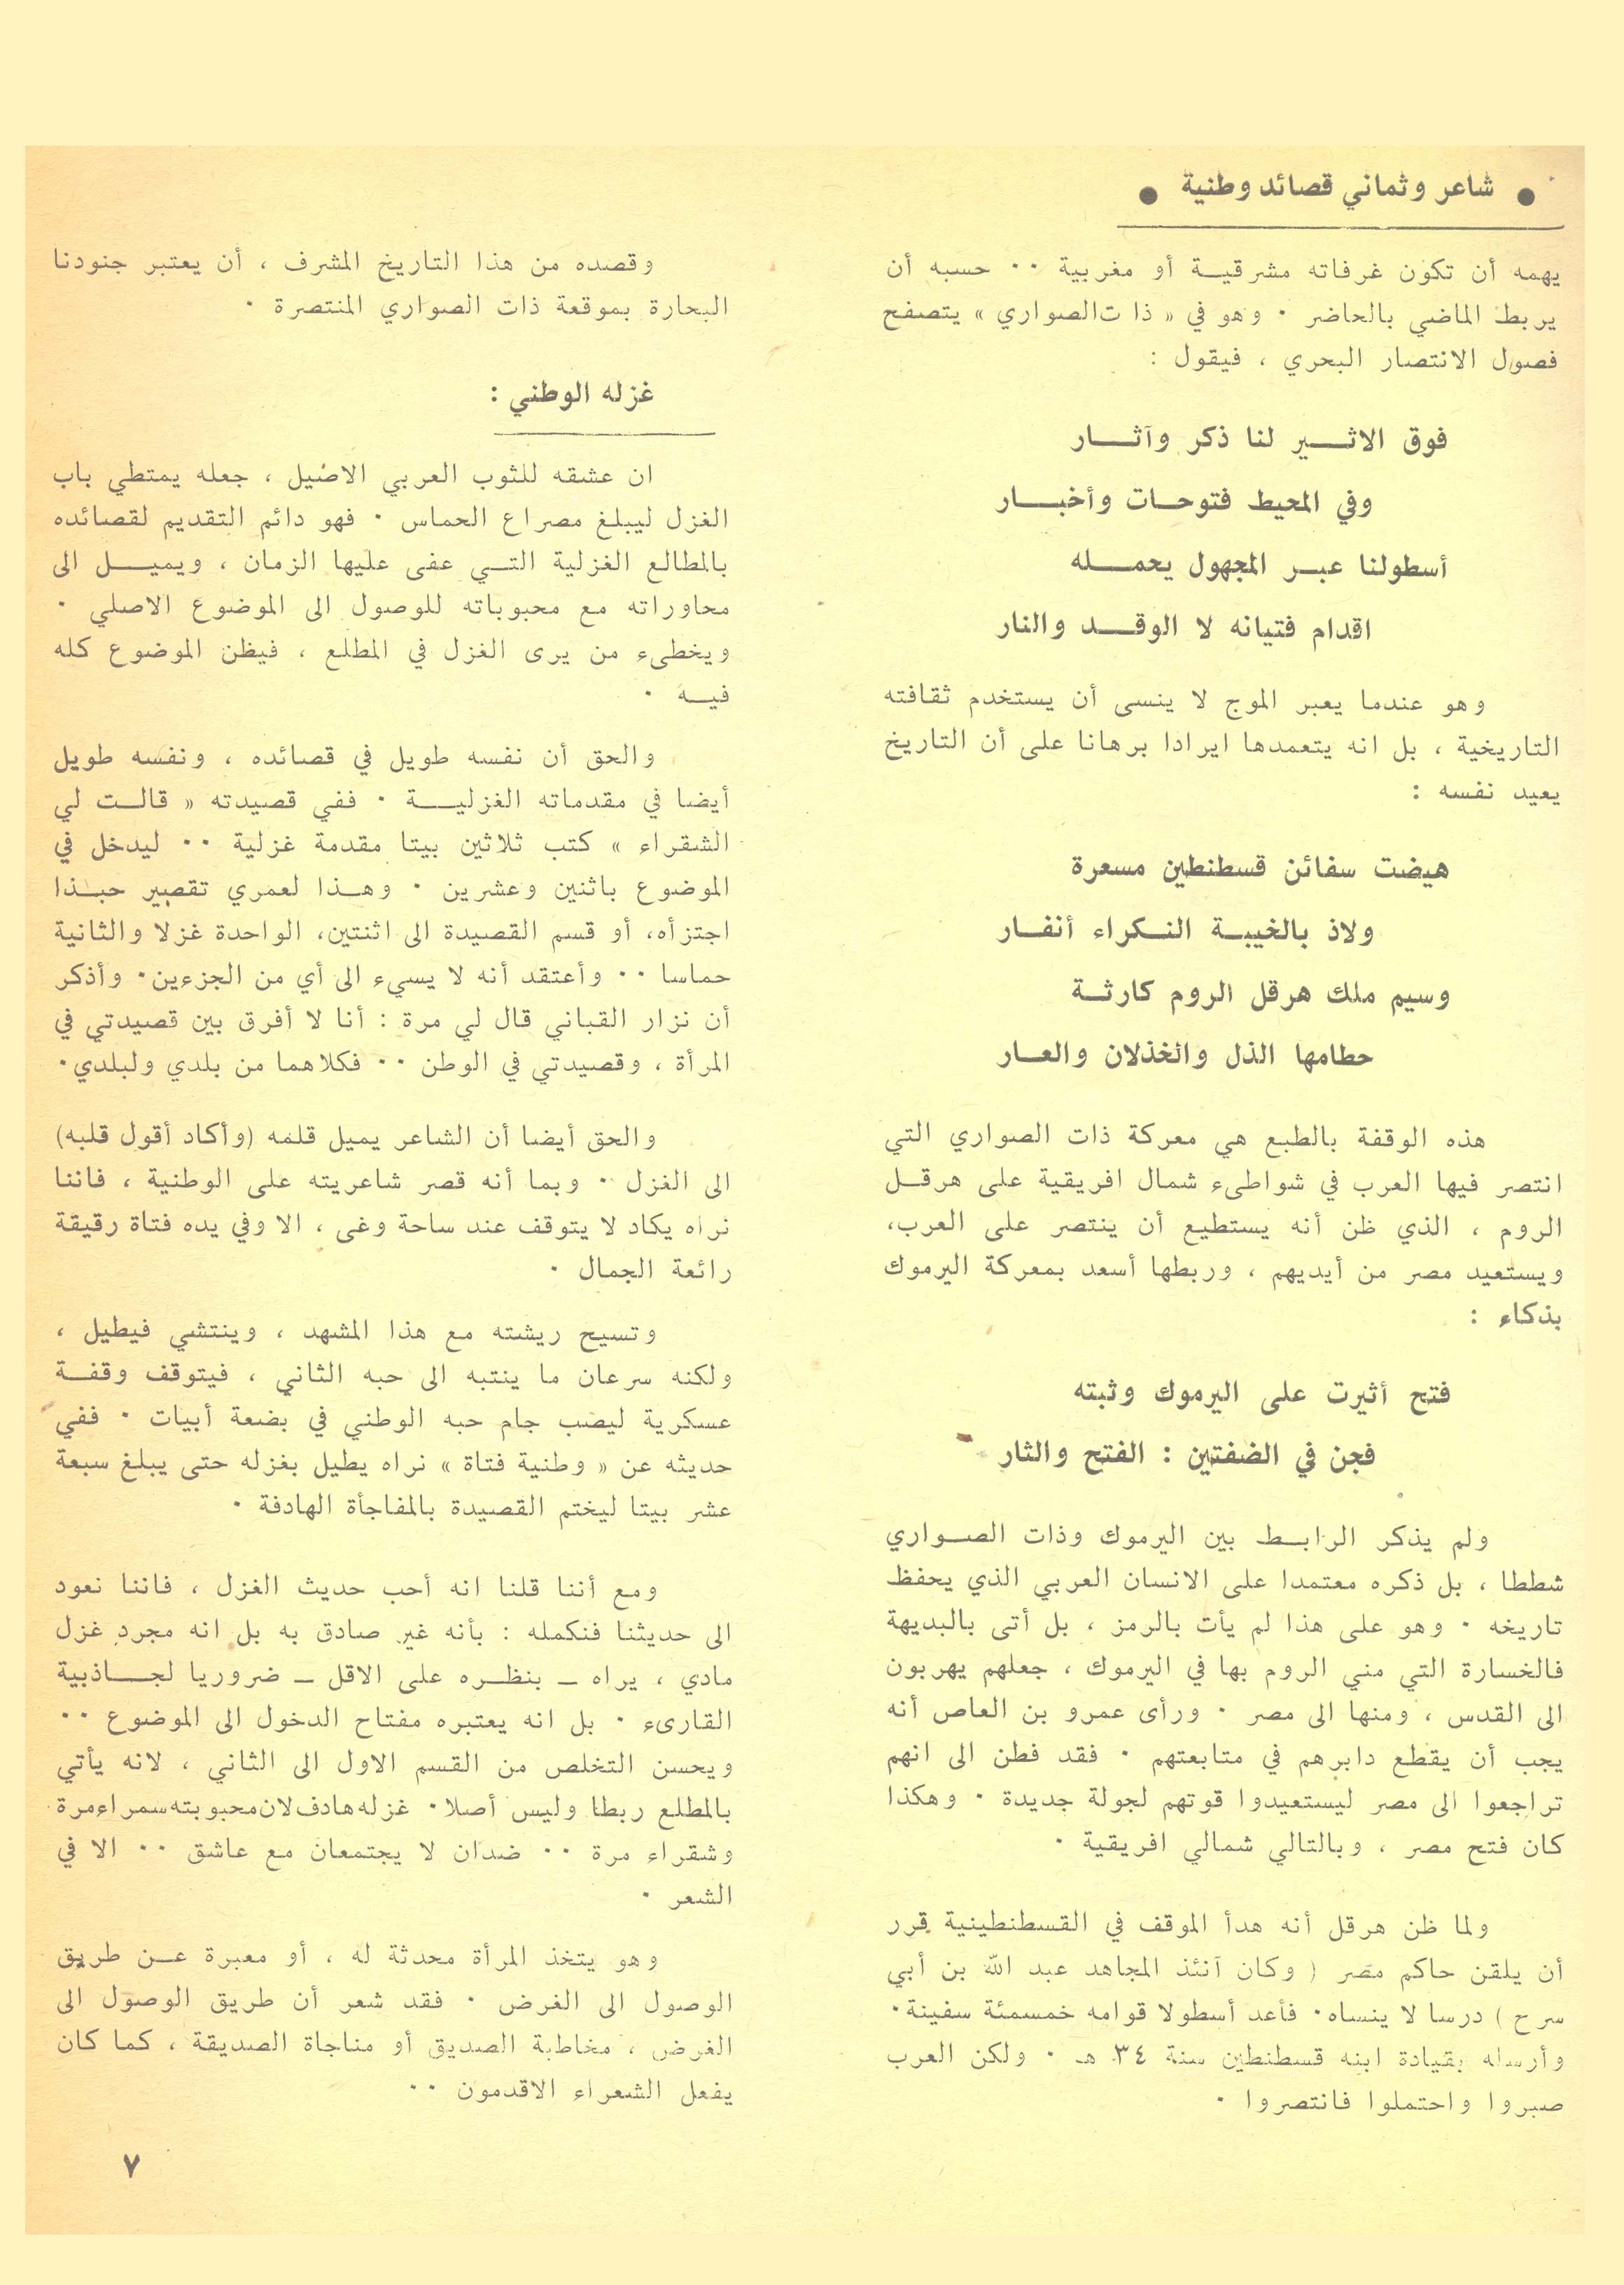 ● شاعر وثماني قصائد وطنية ●
يهمه أن تكون غرفاته مشرقية أو مغربية ٠٠ حسبه أن
يربط الماضي بالحاضر ٠ وهو في « ذات الصواري » يتصفح
فصول الانتصار البحري ، فيقول :
فوق الاثير لنا ذكر وآثار
وفي المحيط فتوحات وأخبار
أسطولنا عبر المجهول يحمله
اقدام فتيانه لا الوقد والنار
وهو عندما يعبر الموج لا ينسى أن يستخدم ثقافته
التاريخية ، بل انه يتعمدها ايرادا برهانا على أن التاريخ
يعيد نفسه :
هيضت سفائن قسطنطين مسعرة
ولاذ بالخيبة النكراء أنفار
وسيم ملك هرقل الروم كارثة
حطامها الذل والخذلان والعار
هذه الوقفة بالطبع هي معركة ذات الصواري التي
انتصر فيها العرب في شواطىء شمال افريقية على هرقل
الروم ، الذي ظن أنه يستطيع أن ينتصر على العرب،
ويستعيد مصر من أيديهم ، وربطها أسعد بمعركة اليرموك
بذكاء :
فتح أثيرت على اليرموك وثبته
فجن في الضفتين : الفتح والثار
ولم يذكر الرابط بين اليرموك وذات الصواري
شططا ، بل ذكره معتمدا على الانسان العربي الذي يحفظ
تاريخه ٠ وهو على هذا لم يأت بالرمز ، بل أتى بالبديهة
فالخسارة التي مني الروم بها في اليرموك ، جعلهم يهربون
الى القدس ، ومنها الى مصر ٠ ورأى عمرو بن العاص أنه
يجب أن يقطع دابرهم في متابعتهم ٠ فقد فطن الى انهم
تراجعوا الى مصر ليستعيدوا قوتهم لجولة جديدة ٠ وهكذا
كان فتح مصر ، وبالتالي شمالي افريقية ٠
ولما ظن هرقل أنه هدأ الموقف في القسطنطينية قرر
أن يلقن حاكم مصر ( وكان آنئذ المجاهد عبد الله بن أبي
سرح ) درسا لا ينساه٠ فأعد أسطولا قوامه خمسمئة سفينة٠
وأرسله بقيادة ابنه قسطنطين سنة ٣٤ هـ ٠ ولكن العرب
صبروا واحتملوا فانتصروا ٠
وقصده من هذا التاريخ المشرف ، أن يعتبر جنودنا
البحارة بموقعة ذات الصواري المنتصرة ٠
غزله الوطني :
ان عشقه للثوب العربي الاصيل ، جعله يمتطي باب
الغزل ليبلغ مصراع الحماس ٠ فهو دائم التقديم لقصائده
بالمطالع الغزلية التي عفى عليها الزمان ، ويميل الى
محاوراته مع محبوباته للوصول الى الموضوع الاصلي ٠
ويخطىء من يرى الغزل في المطلع ، فيظن الموضوع كله
فيه ٠
والحق أن نفسه طويل في قصائده ، ونفسه طويل
أيضا في مقدماته الغزلية ٠ ففي قصيدته « قالت لي
الشقراء » كتب ثلاثين بيتا مقدمة غزلية ٠٠ ليدخل في
الموضوع باثنين وعشرين ٠ وهذا لعمري تقصير حبذا
اجتزأه، أو قسم القصيدة الى اثنتين، الواحدة غزلا والثانية
حماسا ٠٠ وأعتقد أنه لا يسيء الى أي من الجزءين٠ وأذكر
أن نزار القباني قال لي مرة : أنا لا أفرق بين قصيدتي في
المرأة ، وقصيدتي في الوطن ٠٠ فكلاهما من بلدي ولبلدي٠
والحق أيضا أن الشاعر يميل قلمه (وأكاد أقول قلبه)
الى الغزل ٠ وبما أنه قصر شاعريته على الوطنية ، فاننا
نراه يكاد لا يتوقف عند ساحة وغى ، الا وفي يده فتاة رقيقة
رائعة الجمال ٠
وتسيح ريشته مع هذا المشهد ، وينتشي فيطيل ،
ولكنه سرعان ما ينتبه الى حبه الثاني ، فيتوقف وقفة
عسكرية ليصب جام حبه الوطني في بضعة أبيات ٠ ففي
حديثه عن « وطنية فتاة » نراه يطيل بغزله حتى يبلغ سبعة
عشر بيتا ليختم القصيدة بالمفاجأة الهادفة ٠
ومع أننا قلنا انه أحب حديث الغزل ، فاننا نعود
الى حديثنا فنكمله : بأنه غير صادق به بل انه مجرد غزل
مادي ، يراه ــ بنظره على الاقل ــ ضروريا لجاذبية
القارىء ٠ بل انه يعتبره مفتاح الدخول الى الموضوع ٠٠
ويحسن التخلص من القسم الاول الى الثاني ، لانه يأتي
بالمطلع ربطا وليس أصلا٠ غزله هادف لان محبوبته سمراء مرة
وشقراء مرة ٠٠ ضدان لا يجتمعان مع عاشق ٠٠ الا في
الشعر ٠
وهو يتخذ المرأة محدثة له ، أو معبرة عن طريق
الوصول الى الغرض ٠ فقد شعر أن طريق الوصول الى
الغرض ، مخاطبة الصديق أو مناجاة الصديقة ، كما كان
يفعل الشعراء الاقدمون ٠٠
٧